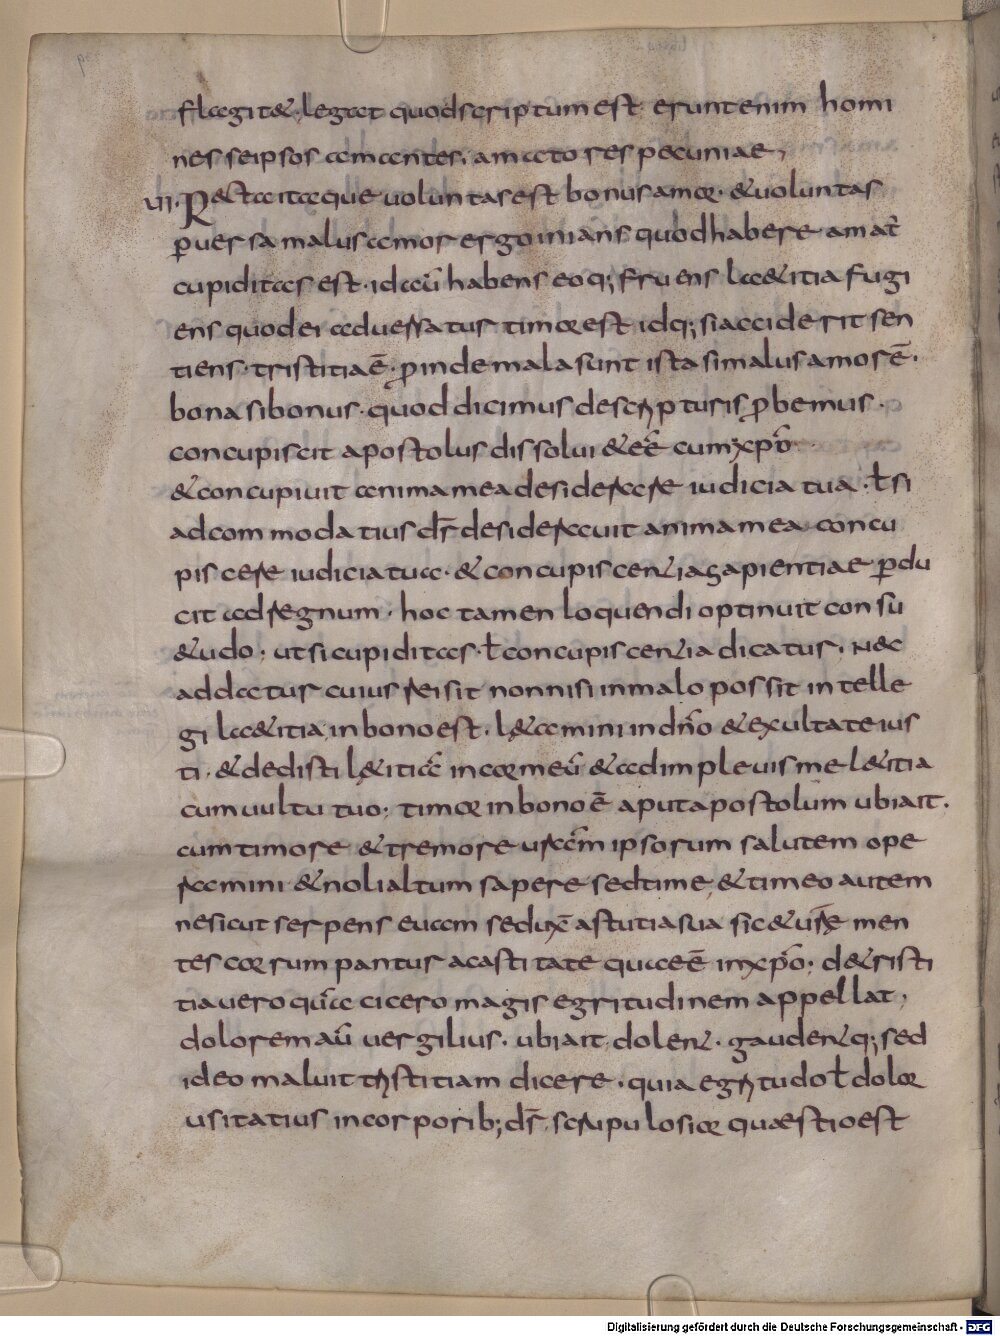 flagitat; legat quod scriptum est erunt enim homi
nes seipsos amantes, amatores pecuniae;
VII. Recta itaque uoluntas est bonus amor. & uoluntas
ꝑuersa malus amor ergo inians quod habere amat̃
cupiditas est. id aũ habens eoq; fruens laetitia fugi
ens quod ei aduersatur timor est idq; si acciderit sen
tiens. tristitia ē. ꝓinde mala sunt ista si malus amor ē.
bona si bonus. quod dicimus de scripturis ꝓbemus.
concupiscit apostolus dissolui & eē cum xp̄o
& concupiuit anima mea desiderare iudicia tua. ł si
adcommodatius dr̄ desiderauit anima mea concu
piscere iudicia tua. & concupiscentia sapientiae ꝑdu
cit ad regnum. hoc tamen loquendi optinuit consu
&udo. ut si cupiditas. ł concupiscentia dicatur. nec
addatur cuius rei sit non nisi in malo possit intelle
gi laetitia in bono est. l&amini in dn̄o & exultate ius
ti. & dedisti l&itiā in cor meū & adimpleuis me l&itia
cum uultu tuo; timor in bono ē aput apostolum ubi ait.
cum timore & tremore ur̄am ipsorum salutem ope
ramini & noli altum sapere sed time, & timeo autem
ne sicut serpens euam seduxē astutia sua sic & ur̄e men
tes corrumpantur a castitate quae ē in xp̄o; de tristi
tia uero quā cicero magis egritudinem appellat,
dolorem aū uergilius. ubi ait dolent. gaudentq; sed
ideo maluit tristitiam dicere. quia egritudo ł dolor
usitatius in corporib; dr̄ scrupulosior quaestio est
Digitalisierung gefördert durch die Deutsche Forschungsgemeinschaft - DFG